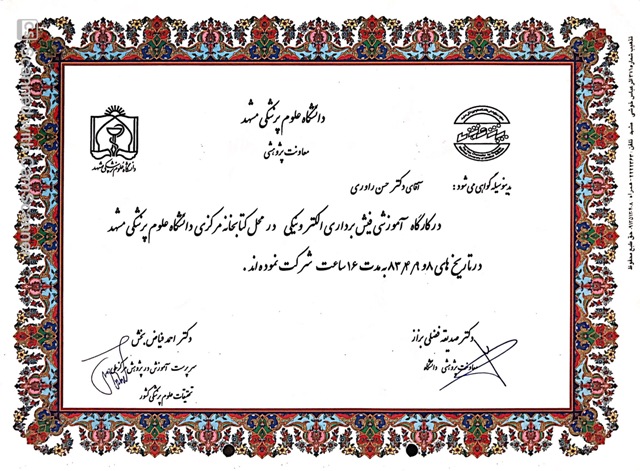 دانشگاه علوم پزشکی مشهد
معاونت پژوهشی
دانشگاه علوم پزشکی مشهد
بدینوسیله گواهی می شود : آقای دکتر حسن رادری
در کارگاه آموزشی فیش برداری الکترونیکی در محل کتابخانه مرکزی دانشگاه علوم پزشکی مشهد
در تاریخ های ۸و۸۳٫۴٫۹ به مدت ۱۶ ساعت شرکت نموده اند .
دکتر صدیقه فضلی براز
معاونت پژوهشی دانشگاه
دکتر احمد فیاض بخش
سرپرست آموزش در پژوهش
تحقیقات علوم پزشکی کشور